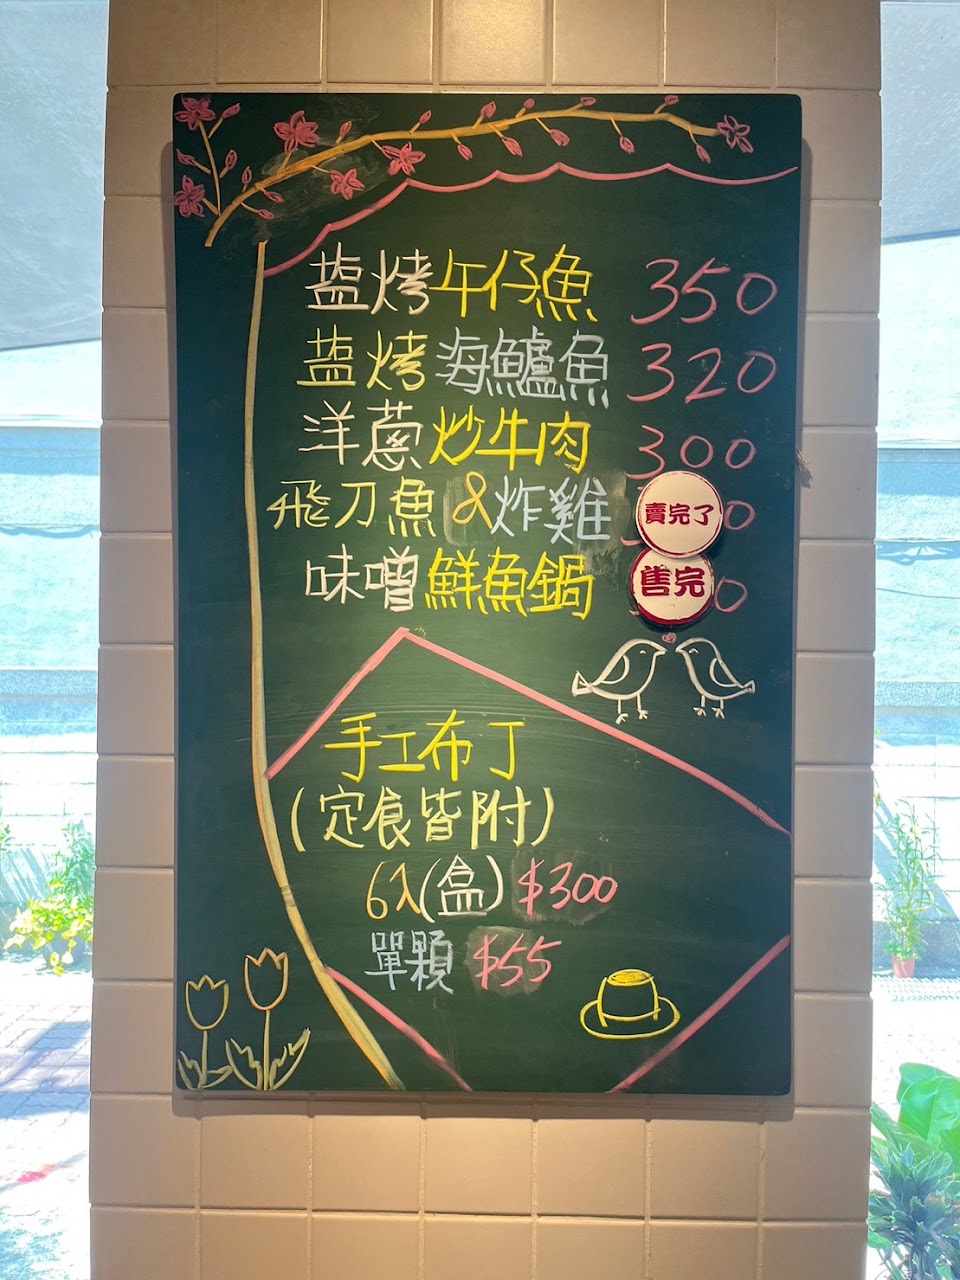 盐烤午仔魚 350
盐烤海鱸魚 320
洋蔥炒牛肉 300
飛刀魚&炸雞 賣完了 0
味噌鮮魚鍋 售完 0
手工布丁
(定食皆附)
6入(盒) $300
單顆 $55